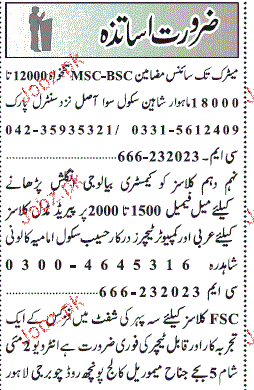 ضرورت اساتذہ
میٹرک تک سائنس مضامین MSC-BSC تنخواہ 12000 تا
18000 ماہوار شاہین سکول سوا آصل نزد سنٹرل پارک
042-35935321 / 0331-5612409
سی ایم۔ 666-232023
نہم دہم کلاسز کو کیمسٹری بیالوجی انگلش پڑھانے
کیلئے میل فیمیل 1500 تا 2000 پر پیریڈ مڈل کلاسز
کیلئے عربی اور کمپیوٹر ٹیچرز درکار حسیب سکول امامیہ کالونی
شاہدرہ 0300-4645316
سی ایم 666-232023
FSC کلاسز کیلئے سہ پہر کی شفٹ میں فزکس کے ایک
تجربہ کار اور قابل ٹیچر کی فوری ضرورت ہے انٹرویو 2 مئی
شام 5 بجے جناح میموریل کالج پونچھ روڈ چوبرجی لاہور